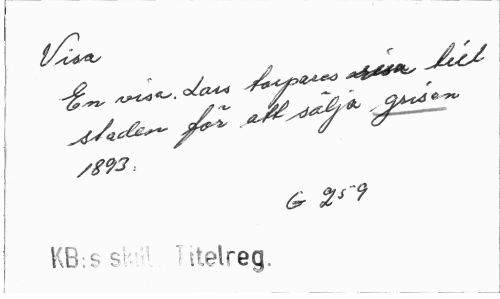 Visa
En visa. Lars torpares resa till
staden för att sälja grisen
1893.
G 259
KB:s skill. Titelreg.